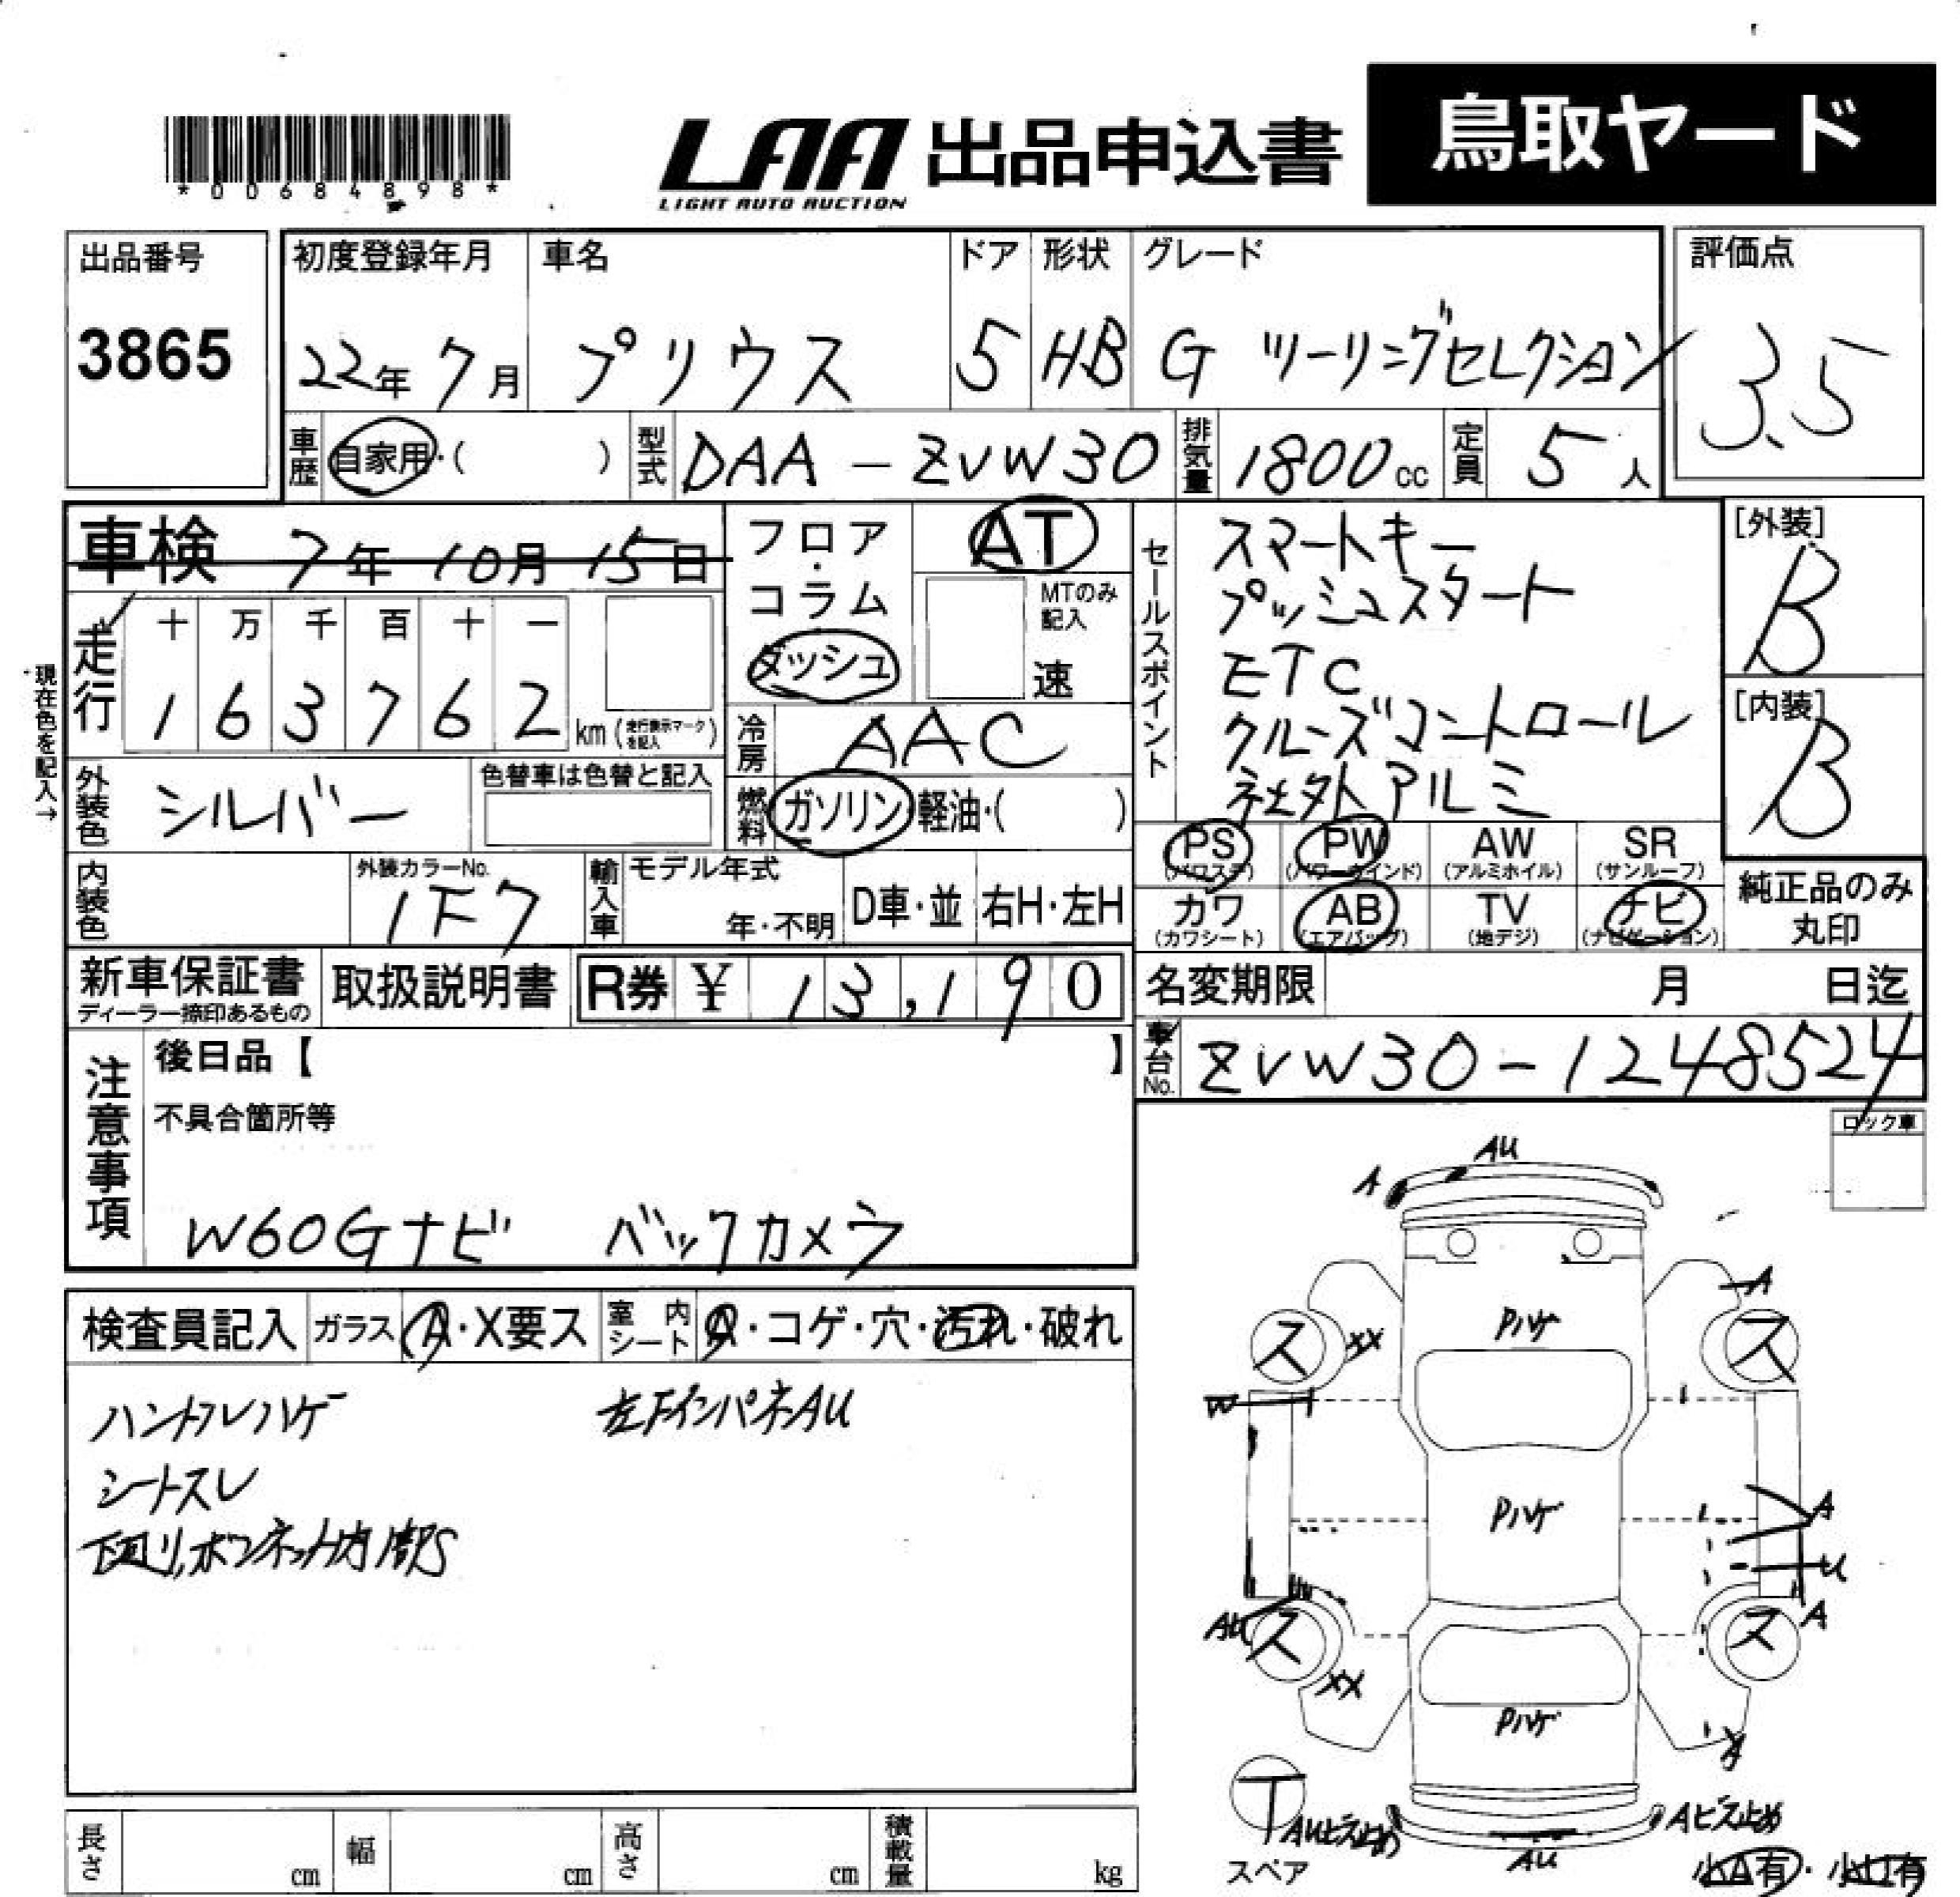 *00684898*
LAA 出品申込書
LIGHT AUTO AUCTION
鳥取ヤード
出品番号
3865
初度登録年月 車名 ドア 形状 グレード
22年7月 プリウス 5 HB G ツーリングセレクション
評価点
3.5
車歴 自家用・( ) 型式 DAA-ZVW30 排気量 1800cc 定員 5人
車検 7年10月15日
フロア・コラム
ダッシュ
AT
MTのみ記入
速
走行
十 万 千 百 十 一
1 6 3 7 6 2 km (走行表示マークを記入)
現在色を記入→
冷房 AAC
燃料 ガソリン・軽油・( )
外装色 シルバー
色替車は色替と記入
内装色
外装カラーNo.
1F7
輸入車 モデル年式
年・不明 D車・並 右H・左H
セールスポイント
スマートキー
プッシュスタート
ETC
クルーズコントロール
社外アルミ
[外装]
B
[内装]
B
PS (パワステ) PW (パワーウインド) AW (アルミホイル) SR (サンルーフ)
カワ (カワシート) AB (エアバッグ) TV (地デジ) ナビ (ナビゲーション)
純正品のみ
丸印
新車保証書
ディーラー捺印あるもの
取扱説明書
R券 ¥ 13,190
名変期限 月 日迄
車台No. ZVW30-1248524
注意事項
後日品【 】
不具合箇所等
W60Gナビ バックカメラ
ロック車
検査員記入 ガラス A・X要ス 室内シート A・コゲ・穴・汚れ・破れ
ハンドルハゲ 左下インパネAU
シートスレ
下回り、ボンネット内部S
AU
A
A
Pハゲ
ス XX ス
W
Pハゲ
A
U
AU ス ス A
XX
Pハゲ
A
T
AUビス止め Aビス止め
AU
スペア
小A有・小U有
長さ cm 幅 cm 高さ cm 積載量 kg